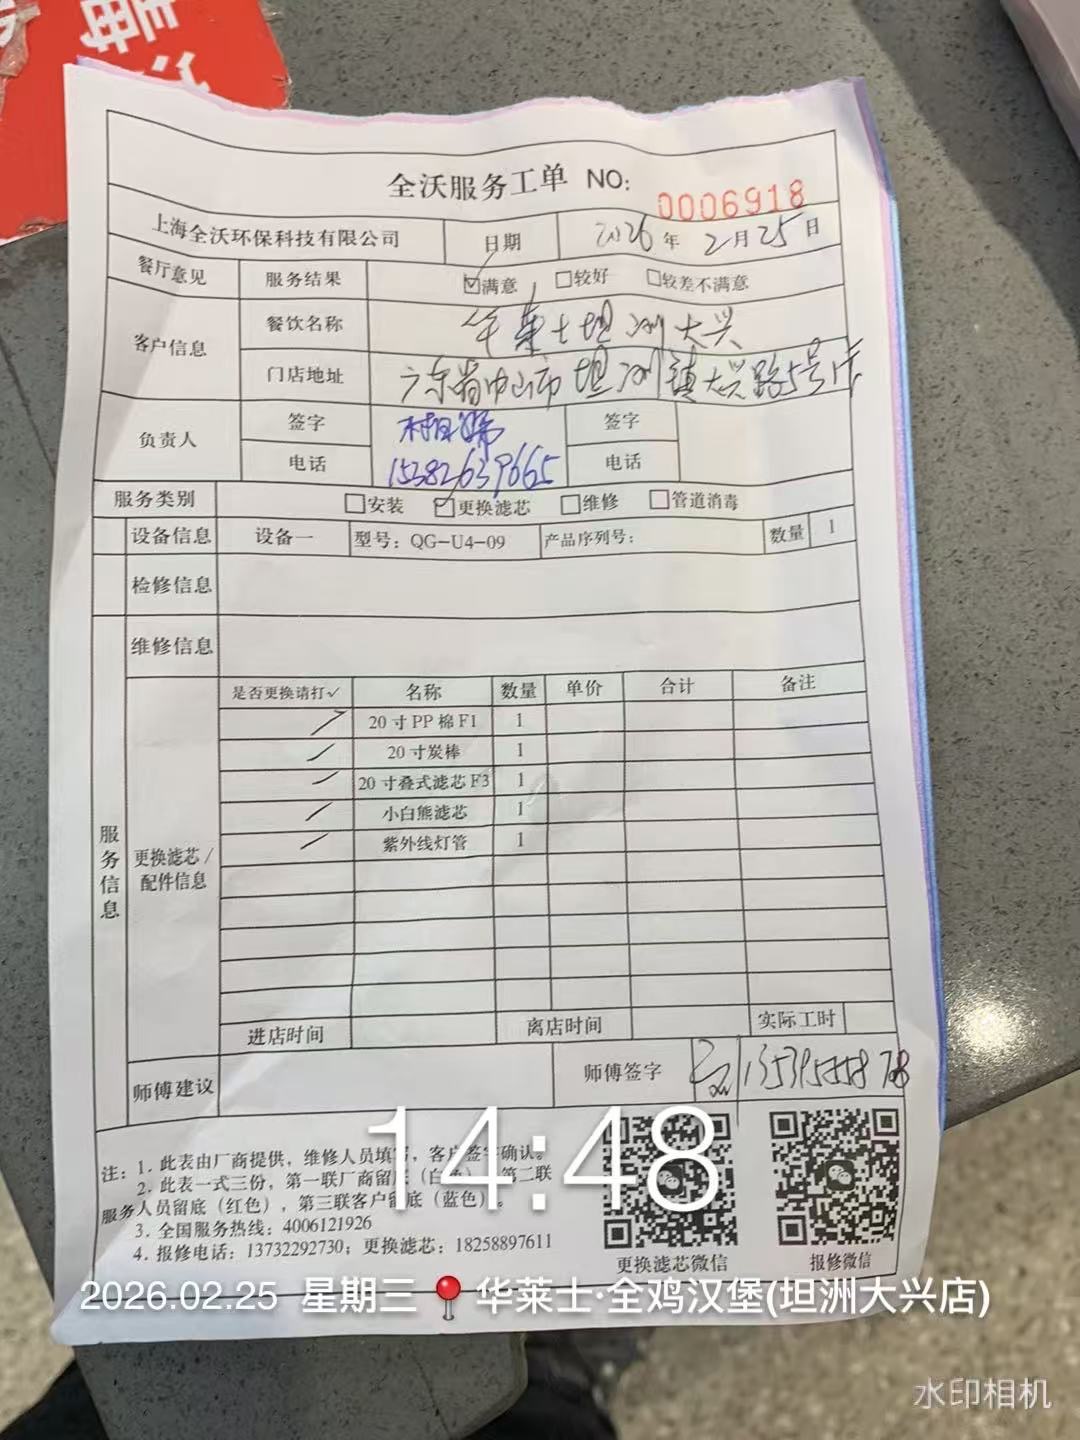 全沃服务工单 NO: 0006918
上海全沃环保科技有限公司 日期 2026年2月25日
餐厅意见 服务结果 ☑满意 ☐较好 ☐较差不满意
客户信息 餐饮名称 华莱士坦洲大兴
门店地址 广东省中山市坦洲镇大兴路5号
负责人 签字 签字
电话 15382639665 电话
服务类别 ☐安装 ☑更换滤芯 ☐维修 ☐管道消毒
服务信息
设备信息 设备一 型号：QG-U4-09 产品序列号： 数量 1
检修信息
维修信息
更换滤芯/配件信息
是否更换请打✓ 名称 数量 单价 合计 备注
✓ 20寸PP棉F1 1
✓ 20寸炭棒 1
✓ 20寸叠式滤芯F3 1
✓ 小白熊滤芯 1
✓ 紫外线灯管 1
进店时间 离店时间 实际工时
师傅建议 师傅签字
注：1. 此表由厂商提供，维修人员填写，客户签字确认。
2. 此表一式三份，第一联厂商留底（白色），第二联
服务人员留底（红色），第三联客户留底（蓝色）。
3. 全国服务热线：4006121926
4. 报修电话：13732292730；更换滤芯：18258897611
更换滤芯微信 报修微信
14:48
2026.02.25 星期三 华莱士·全鸡汉堡(坦洲大兴店)
水印相机